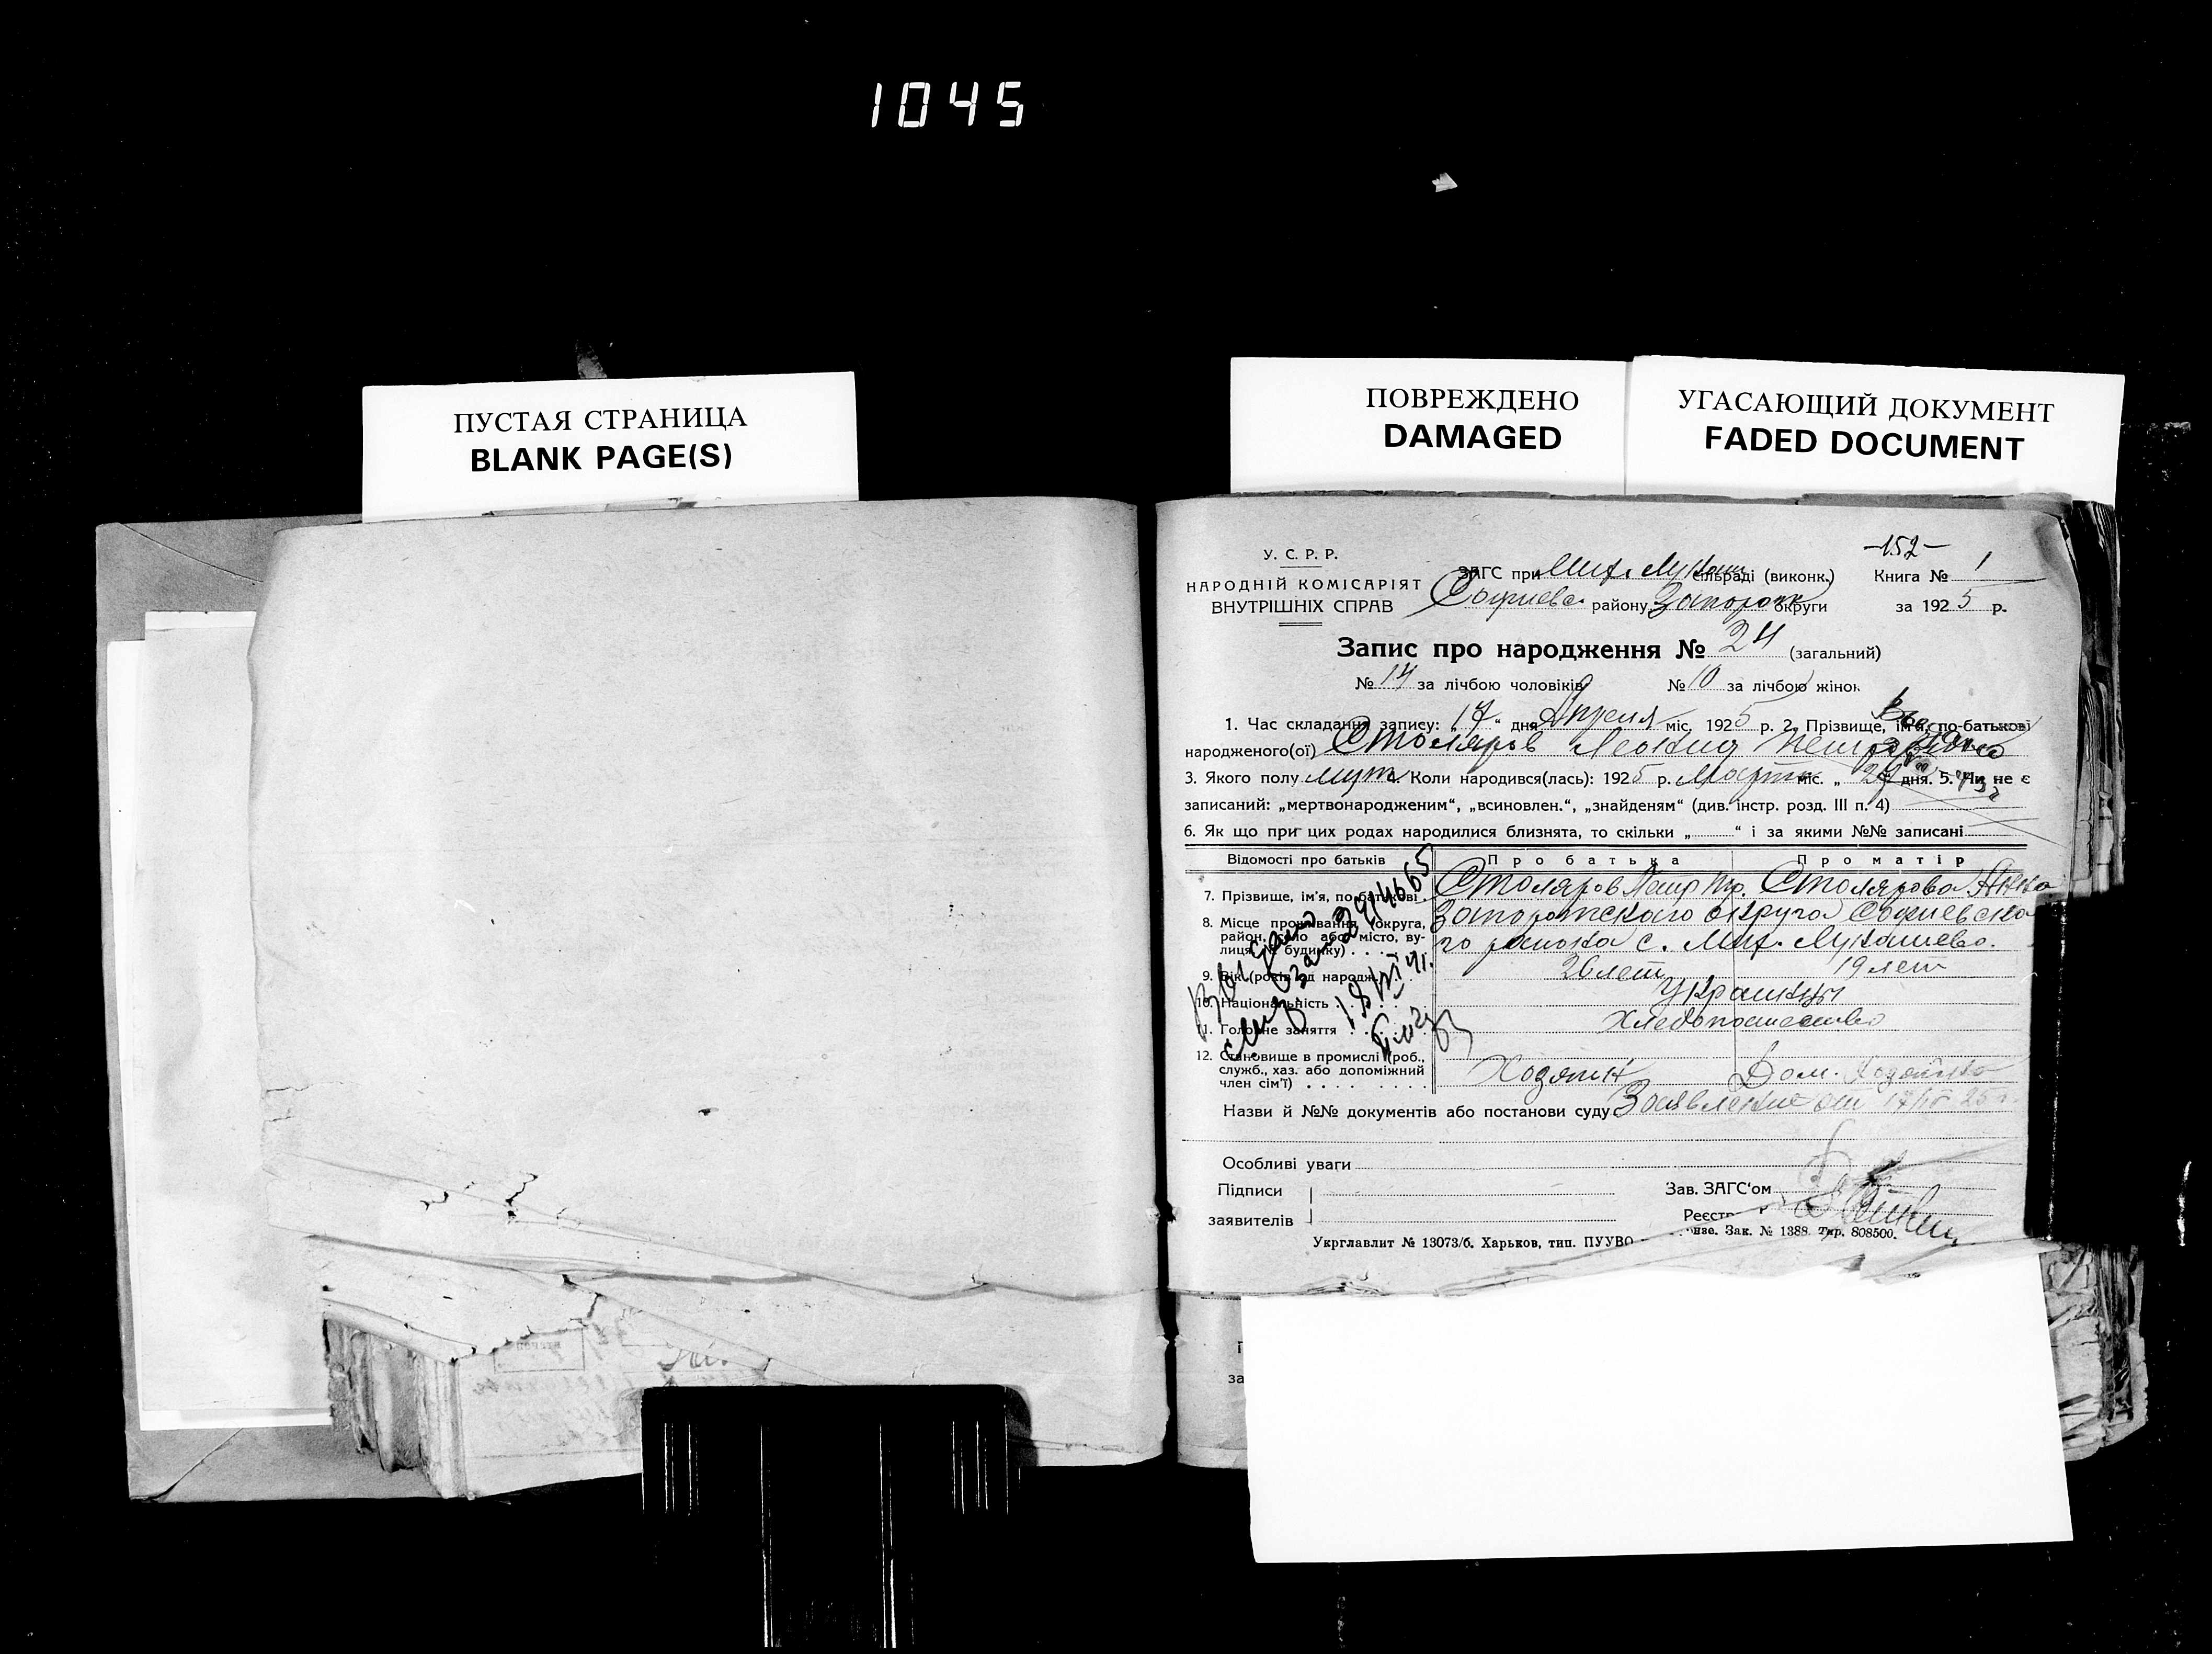 1045
ПУСТАЯ СТРАНИЦА
BLANK PAGE(S)
ПОВРЕЖДЕНО
DAMAGED
УГАСАЮЩИЙ ДОКУМЕНТ
FADED DOCUMENT
-152-
У. С. Р. Р.
НАРОДНІЙ КОМІСАРІЯТ
ВНУТРІШНІХ СПРАВ
ЗАГС при Мих. Лукаш сільраді (виконк.) Книга № 1
Софиевс. району Запорож округи за 1925 р.
Запис про народження № 24 (загальний)
№ 14 за лічбою чоловіків № 10 за лічбою жінок
1. Час складання запису: 17 " дня Апреля міс. 1925 р. 2. Прізвище, ім'я, по-батькові
народженого(ої) Столяров Леонид
3. Якого полу муж 4. Коли народився(лась): 1925 р. Марта міс. „ дня. 5. Чи не є
записаний: „мертвонародженим", „всиновлен.", „знайденям" (див. інстр. розд. III п. 4)
6. Як що при цих родах народилися близнята, то скільки „ " і за якими №№ записані
Відомості про батьків Про батька Про матір
7. Прізвище, ім'я, по-батькові Столяров Петр Столярова Анна
8. Місце проживання (округа, район, село або місто, вулиця, № будинку) Запорожского округа Софиевско
го района с. Мих. Лукашево.
9. Вік (років від народж.) 26 лет 19 лет
10. Національність Украинцы
11. Головне заняття Хлебопашество
12. Становище в промислі (роб., служб., хаз. або допоміжний член сім'ї) Хозяин Дом. Хозяйка
Назви й №№ документів або постанови суду: Заявление от 17/IV 25 г.
Особливі уваги
Підписи
заявителів
Зав. ЗАГС'ом
Реєстр
Укрглавлит № 13073/б. Харьков, тип. ПУУВО Зак. № 1388. Тир. 808500.